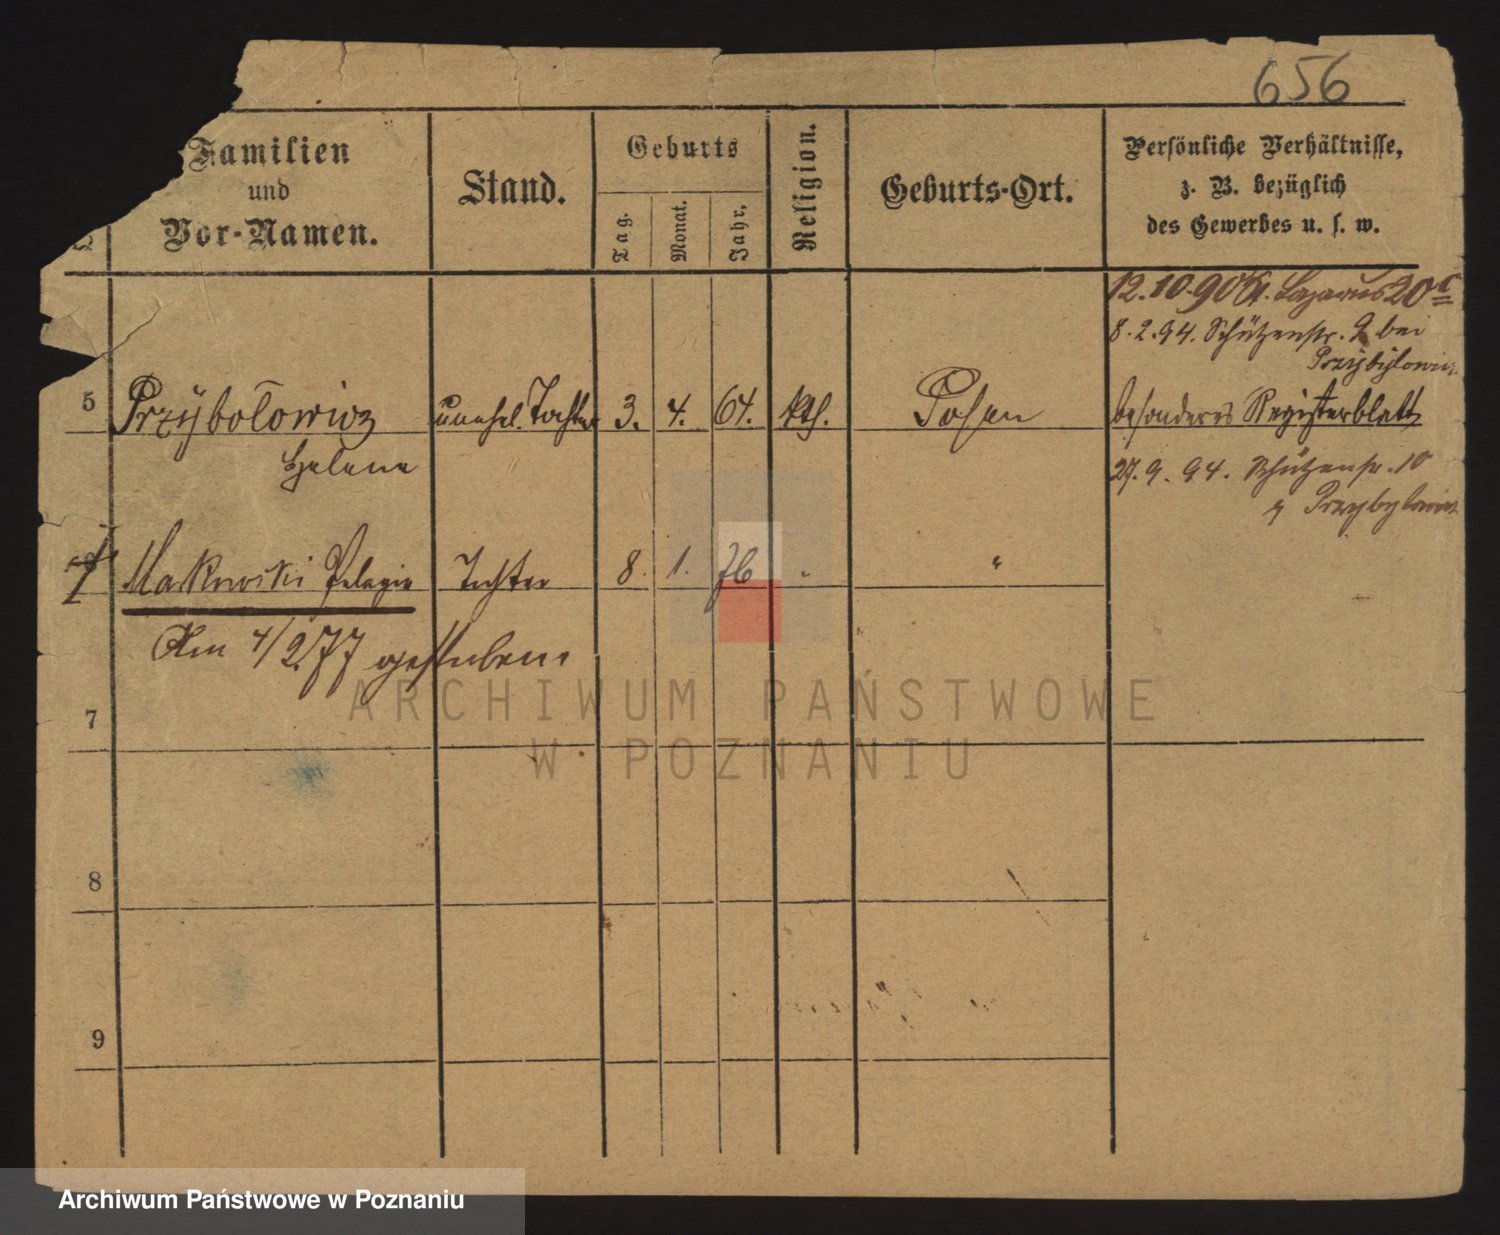 656
Familien
und
Vor-Namen.
Stand.
Geburts
Tag.
Monat.
Jahr,
Religion.
Geburts-Ort.
Persönliche Verhältnisse,
z. B. bezüglich
des Gewerbes u. s. w.
12.10.90 St. Lazarus 20
8.2.94. Schützenstr. 9 bei
Przybylowicz
5 Przÿbołowicz unehel. Tochter 3. 4. 64. kth. Posen besonderes Registerblatt
Helene
27.9.94. Schützenstr. 10
Przybylowicz
Makowski Pelagie Tochter 8. 1. 76 " "
Am 4/2.77 gestorben
7
8
9
ARCHIWUM PAŃSTWOWE
W POZNANIU
Archiwum Państwowe w Poznaniu